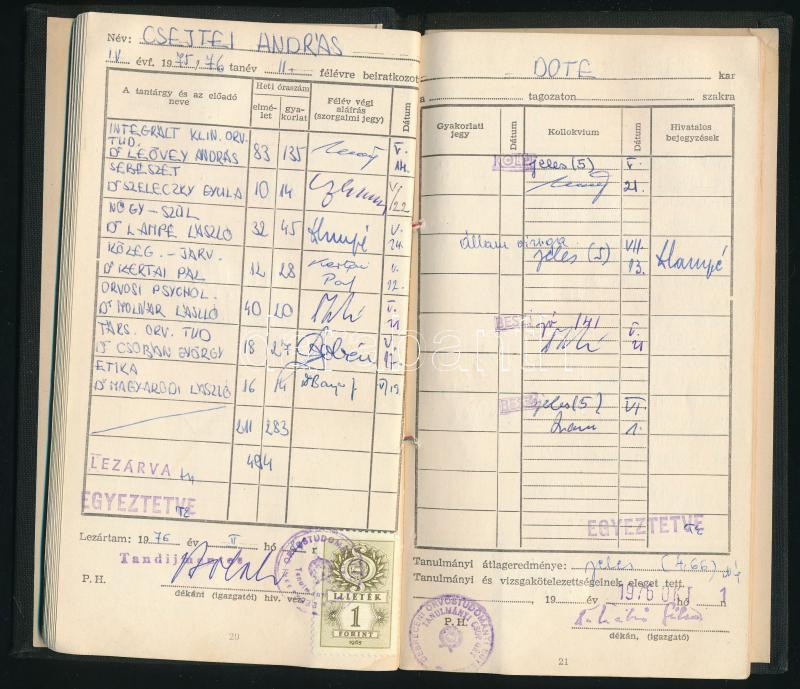 Név: CSEJTEI ANDRÁS
IV évf. 1975/76 tanév II. félévre beiratkozott
A tantárgy és az előadó neve
Heti óraszám
elmélet
gyakorlat
Félév végi aláírás (szorgalmi jegy)
Dátum
INTEGRÁLT KLIN. ORV.
TUD.
Dr LEÖVEY ANDRÁS 83 135 V. 14.
SEBÉSZET
Dr SZELECZKY GYULA 10 14 V/22
NŐGY-SZÜL
Dr LAMPÉ LÁSZLÓ 32 45 Lampé V. 24.
KÖZEG. - JÁRV.
Dr KERTAI PÁL 12 28 Kertai Pál V. 12.
ORVOSI PSYCHOL.
Dr MOLNÁR LÁSZLÓ 40 20 V. 21
TÁRS. ORV. TUD
Dr CSOBÁN GYÖRGY 18 27 V. 17.
ETIKA
Dr MAGYARÓDI LÁSZLÓ 16 14 V/19
211 283
494
LEZÁRVA
EGYEZTETVE
Lezártam: 1976 év II hó
Tandíjmentes
P. H.
dékáni (igazgatói) hiv. vez.
ILLETÉK
1
FORINT
1965
20
DOTE kar
a tagozaton szakra
Gyakorlati jegy
Dátum
Kollokvium
Dátum
Hivatalos bejegyzések
jeles (5) V. 21.
állam vizsga
jeles (5) VII. 13. Lampé
jó (4) V. 21
jeles (5) VI. 1.
EGYEZTETVE
Tanulmányi átlageredménye: jeles (4.66)
Tanulmányi és vizsgakötelezettségeinek eleget tett.
19 év hó
1976 OKT 1
P. H.
dékán, (igazgató)
21
darabanth